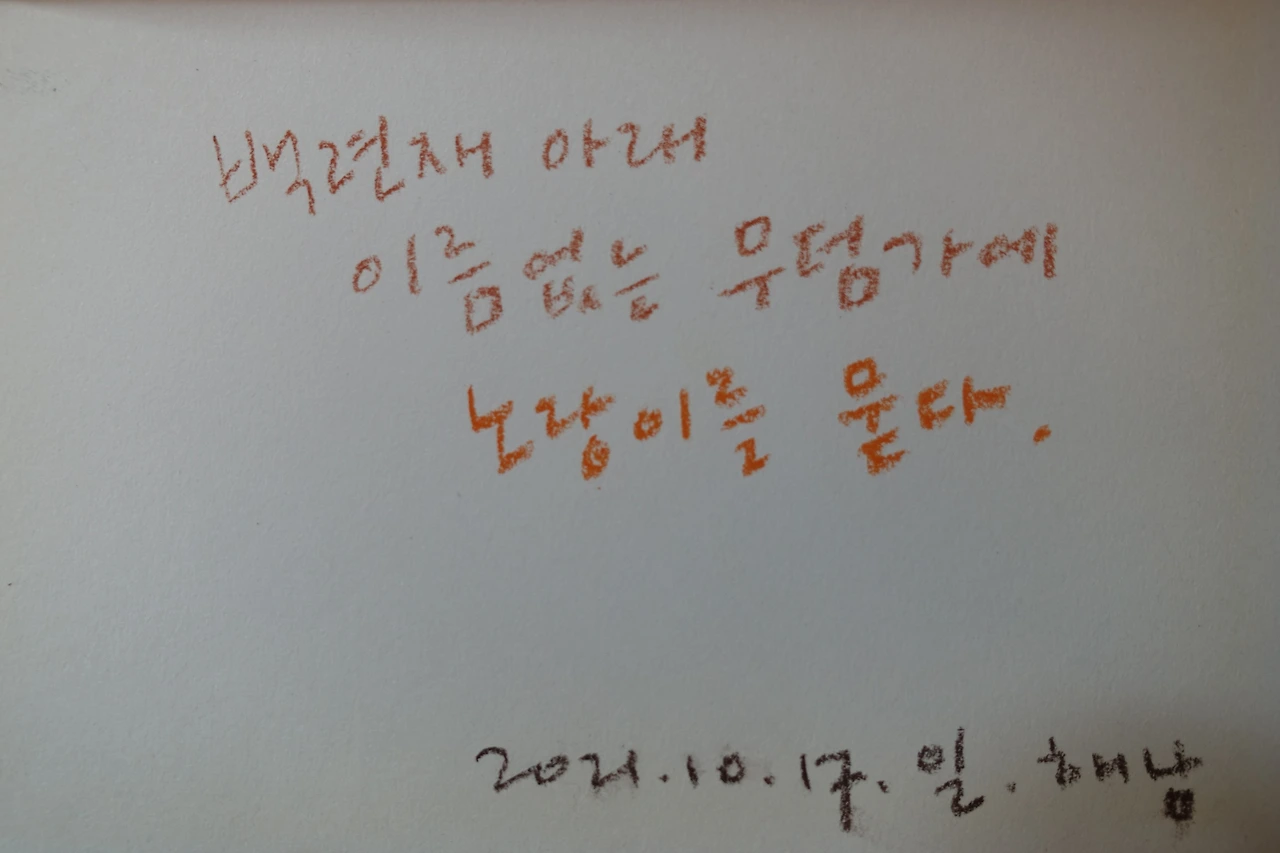 백련재 아래
이름없는 무덤가에
노랑이를 묻다.
2021.10.17.일.해남